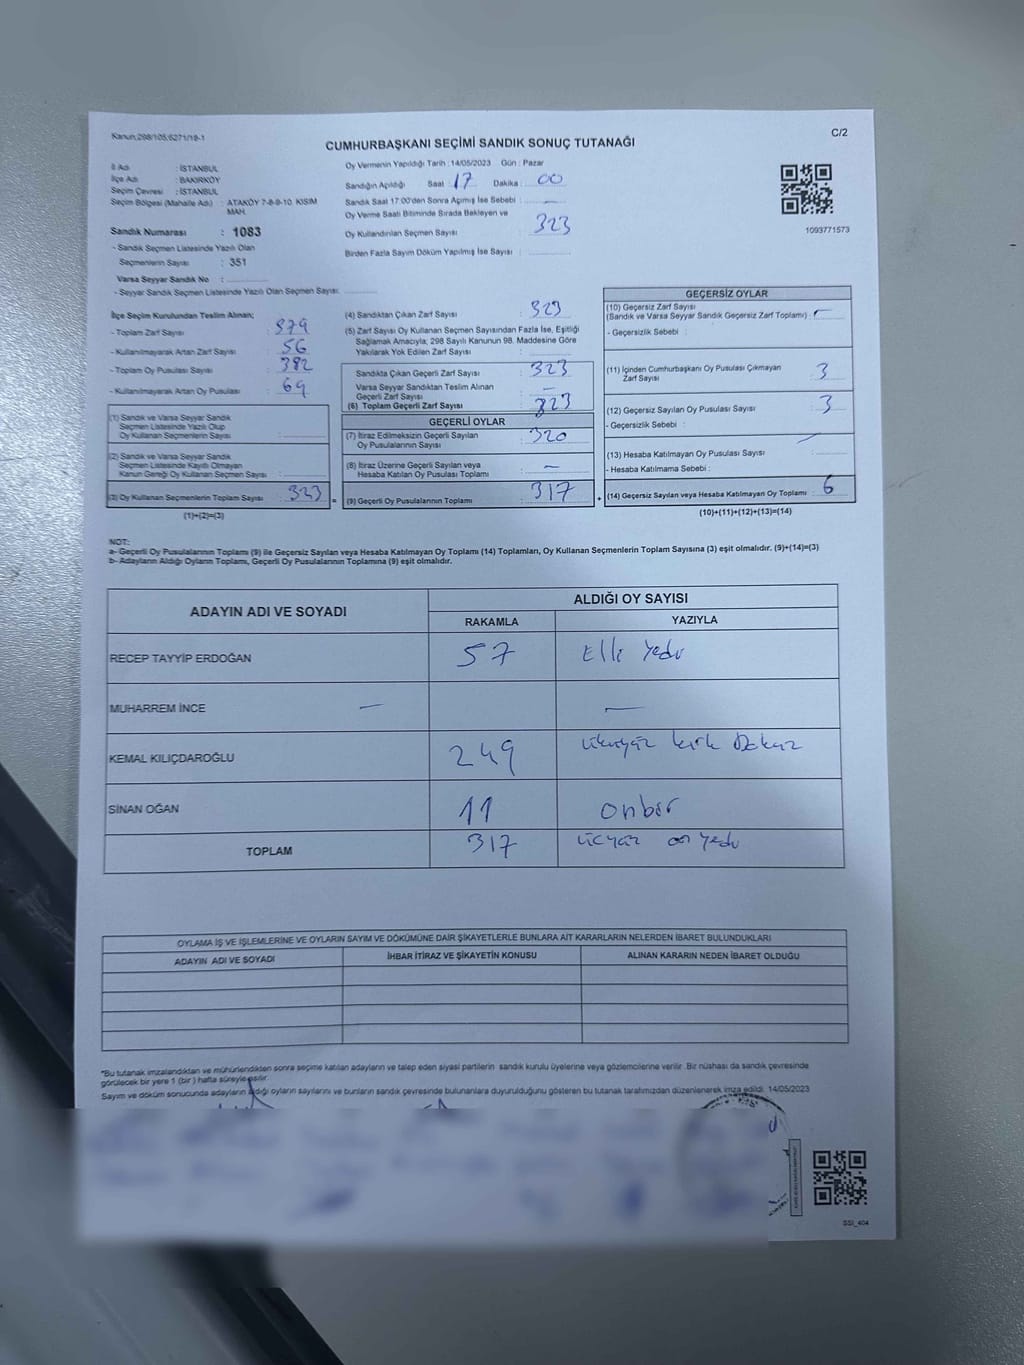 Kanun:298/105,6271/18-1
C/2
CUMHURBAŞKANI SEÇİMİ SANDIK SONUÇ TUTANAĞI
İl Adı : İSTANBUL
İlçe Adı : BAKIRKÖY
Seçim Çevresi : İSTANBUL
Seçim Bölgesi (Mahalle Adı) : ATAKÖY 7-8-9-10. KISIM
MAH.
Sandık Numarası : 1083
- Sandık Seçmen Listesinde Yazılı Olan
Seçmenlerin Sayısı : 351
Varsa Seyyar Sandık No :
- Seyyar Sandık Seçmen Listesinde Yazılı Olan Seçmen Sayısı:
Oy Vermenin Yapıldığı Tarih : 14/05/2023 Gün : Pazar
Sandığın Açıldığı Saat : 17 Dakika : 00
Sandık Saat 17:00'den Sonra Açımış İse Sebebi : —
Oy Verme Saati Bitiminde Sırada Bekleyen ve
Oy Kullandırılan Seçmen Sayısı : 323
Birden Fazla Sayım Döküm Yapılmış İse Sayısı :
1093771573
İlçe Seçim Kurulundan Teslim Alınan;
- Toplam Zarf Sayısı : 379
- Kullanılmayarak Artan Zarf Sayısı : 56
- Toplam Oy Pusulası Sayısı : 382
- Kullanılmayarak Artan Oy Pusulası : 69
(1) Sandık ve Varsa Seyyar Sandık
Seçmen Listesinde Yazılı Olup
Oy Kullanan Seçmenlerin Sayısı :
(2) Sandık ve Varsa Seyyar Sandık
Seçmen Listesinde Kayıtlı Olmayan
Kanun Gereği Oy Kullanan Seçmen Sayısı :
(3) Oy Kullanan Seçmenlerin Toplam Sayısı : 323
(1)+(2)=(3)
(4) Sandıktan Çıkan Zarf Sayısı : 323
(5) Zarf Sayısı Oy Kullanan Seçmen Sayısından Fazla İse, Eşitliği
Sağlamak Amacıyla; 298 Sayılı Kanunun 98. Maddesine Göre
Yakılarak Yok Edilen Zarf Sayısı :
Sandıkta Çıkan Geçerli Zarf Sayısı : 323
Varsa Seyyar Sandıktan Teslim Alınan
Geçerli Zarf Sayısı : —
(6) Toplam Geçerli Zarf Sayısı : 323
GEÇERLİ OYLAR
(7) İtiraz Edilmeksizin Geçerli Sayılan
Oy Pusulalarının Sayısı : 320
(8) İtiraz Üzerine Geçerli Sayılan veya
Hesaba Katılan Oy Pusulası Toplamı : —
= (9) Geçerli Oy Pusulalarının Toplamı : 317
GEÇERSİZ OYLAR
(10) Geçersiz Zarf Sayısı
(Sandık ve Varsa Seyyar Sandık Geçersiz Zarf Toplamı) : —
- Geçersizlik Sebebi :
(11) İçinden Cumhurbaşkanı Oy Pusulası Çıkmayan
Zarf Sayısı : 3
(12) Geçersiz Sayılan Oy Pusulası Sayısı : 3
- Geçersizlik Sebebi :
(13) Hesaba Katılmayan Oy Pusulası Sayısı :
- Hesaba Katılmama Sebebi :
+ (14) Geçersiz Sayılan veya Hesaba Katılmayan Oy Toplamı : 6
(10)+(11)+(12)+(13)=(14)
NOT:
a- Geçerli Oy Pusulalarının Toplamı (9) ile Geçersiz Sayılan veya Hesaba Katılmayan Oy Toplamı (14) Toplamları, Oy Kullanan Seçmenlerin Toplam Sayısına (3) eşit olmalıdır. (9)+(14)=(3)
b- Adayların Aldığı Oyların Toplamı, Geçerli Oy Pusulalarının Toplamına (9) eşit olmalıdır.
ADAYIN ADI VE SOYADI ALDIĞI OY SAYISI
RAKAMLA YAZIYLA
RECEP TAYYİP ERDOĞAN 57 Elli Yedi
MUHARREM İNCE — —
KEMAL KILIÇDAROĞLU 249 ikiyüz kırk Dokuz
SİNAN OĞAN 11 onbir
TOPLAM 317 üçyüz on yedi
OYLAMA İŞ VE İŞLEMLERİNE VE OYLARIN SAYIM VE DÖKÜMÜNE DAİR ŞİKAYETLERLE BUNLARA AİT KARARLARIN NELERDEN İBARET BULUNDUKLARI
ADAYIN ADI VE SOYADI İHBAR İTİRAZ VE ŞİKAYETİN KONUSU ALINAN KARARIN NEDEN İBARET OLDUĞU
*Bu tutanak imzalandıktan ve mühürlendikten sonra seçime katılan adayların ve talep eden siyasi partilerin sandık kurulu üyelerine veya gözlemcilerine verilir. Bir nüshası da sandık çevresinde
görülecek bir yere 1 (bir ) hafta süreyle asılır.
Sayım ve döküm sonucunda adayların aldığı oyların sayılarını ve bunların sandık çevresinde bulunanlara duyurulduğunu gösteren bu tutanak tarafımızdan düzenlenerek imza edildi. 14/05/2023
SSI_404